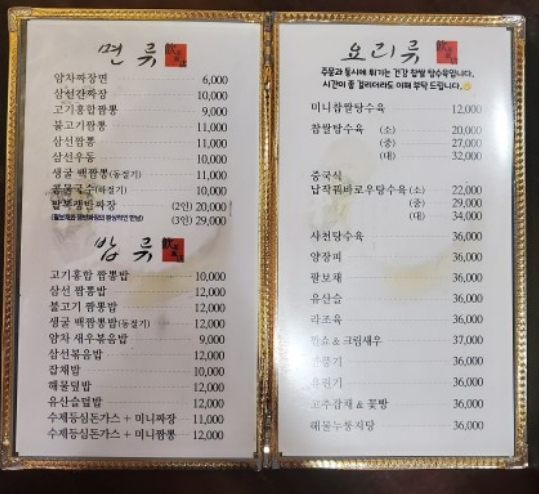 면 류
암차짜장면 6,000
삼선간짜장 10,000
고기홍합짬뽕 9,000
불고기짬뽕 11,000
삼선짬뽕 11,000
삼선우동 10,000
생굴 백짬뽕(동절기) 11,000
콩물국수(하절기) 10,000
팔보쟁반짜장 (2인) 20,000
(3인) 29,000
밥 류
고기홍합 짬뽕밥 10,000
삼선 짬뽕밥 12,000
불고기 짬뽕밥 12,000
생굴 백짬뽕밥(동절기) 12,000
암차 새우볶음밥 9,000
삼선볶음밥 12,000
잡채밥 10,000
해물덮밥 12,000
유산슬덮밥 12,000
수제등심돈가스 + 미니짜장 11,000
수제등심돈가스 + 미니짬뽕 12,000
요리류
주문과 동시에 튀기는 건강 찹쌀 탕수육입니다.
시간이 좀 걸리더라도 이해 부탁 드립니다.
미니찹쌀탕수육 12,000
찹쌀탕수육 (소) 20,000
(중) 27,000
(대) 32,000
중국식
납작꿔바로우탕수육 (소) 22,000
(중) 29,000
(대) 34,000
사천탕수육 36,000
양장피 36,000
팔보채 36,000
유산슬 36,000
라조육 36,000
깐쇼 & 크림새우 37,000
깐풍기 36,000
유린기 36,000
고추잡채 & 꽃빵 36,000
해물누룽지탕 36,000